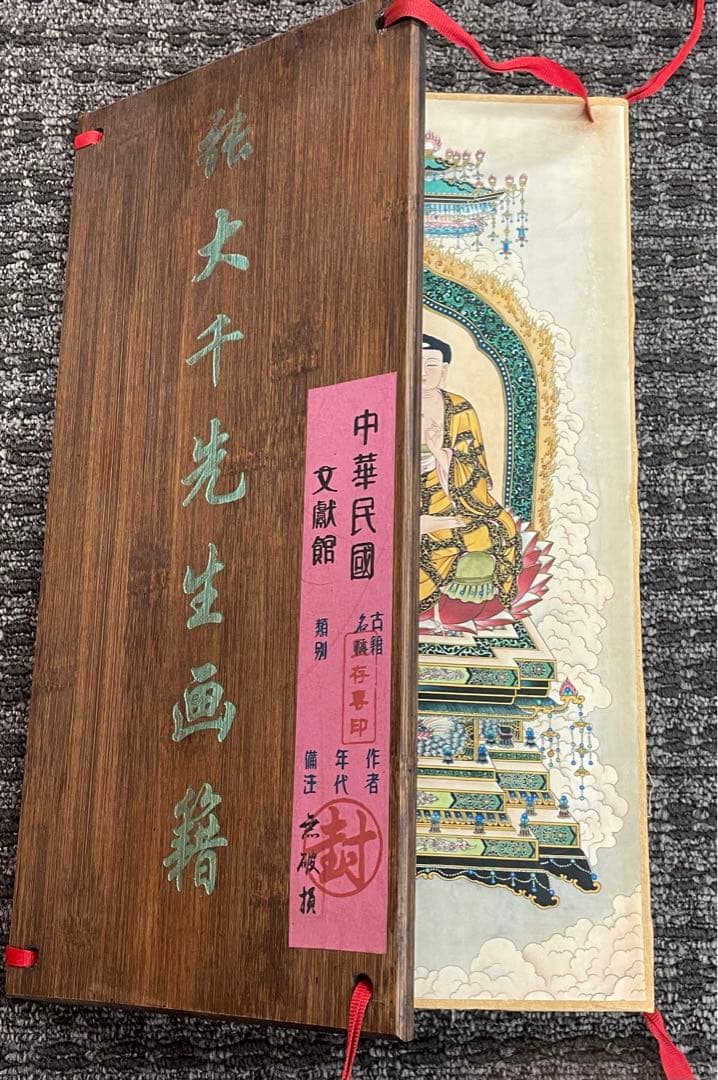 張大千先生画籍
中華民國
文獻館
古籍
名稱
存專印
類别
作者
年代
備注
無破損
封